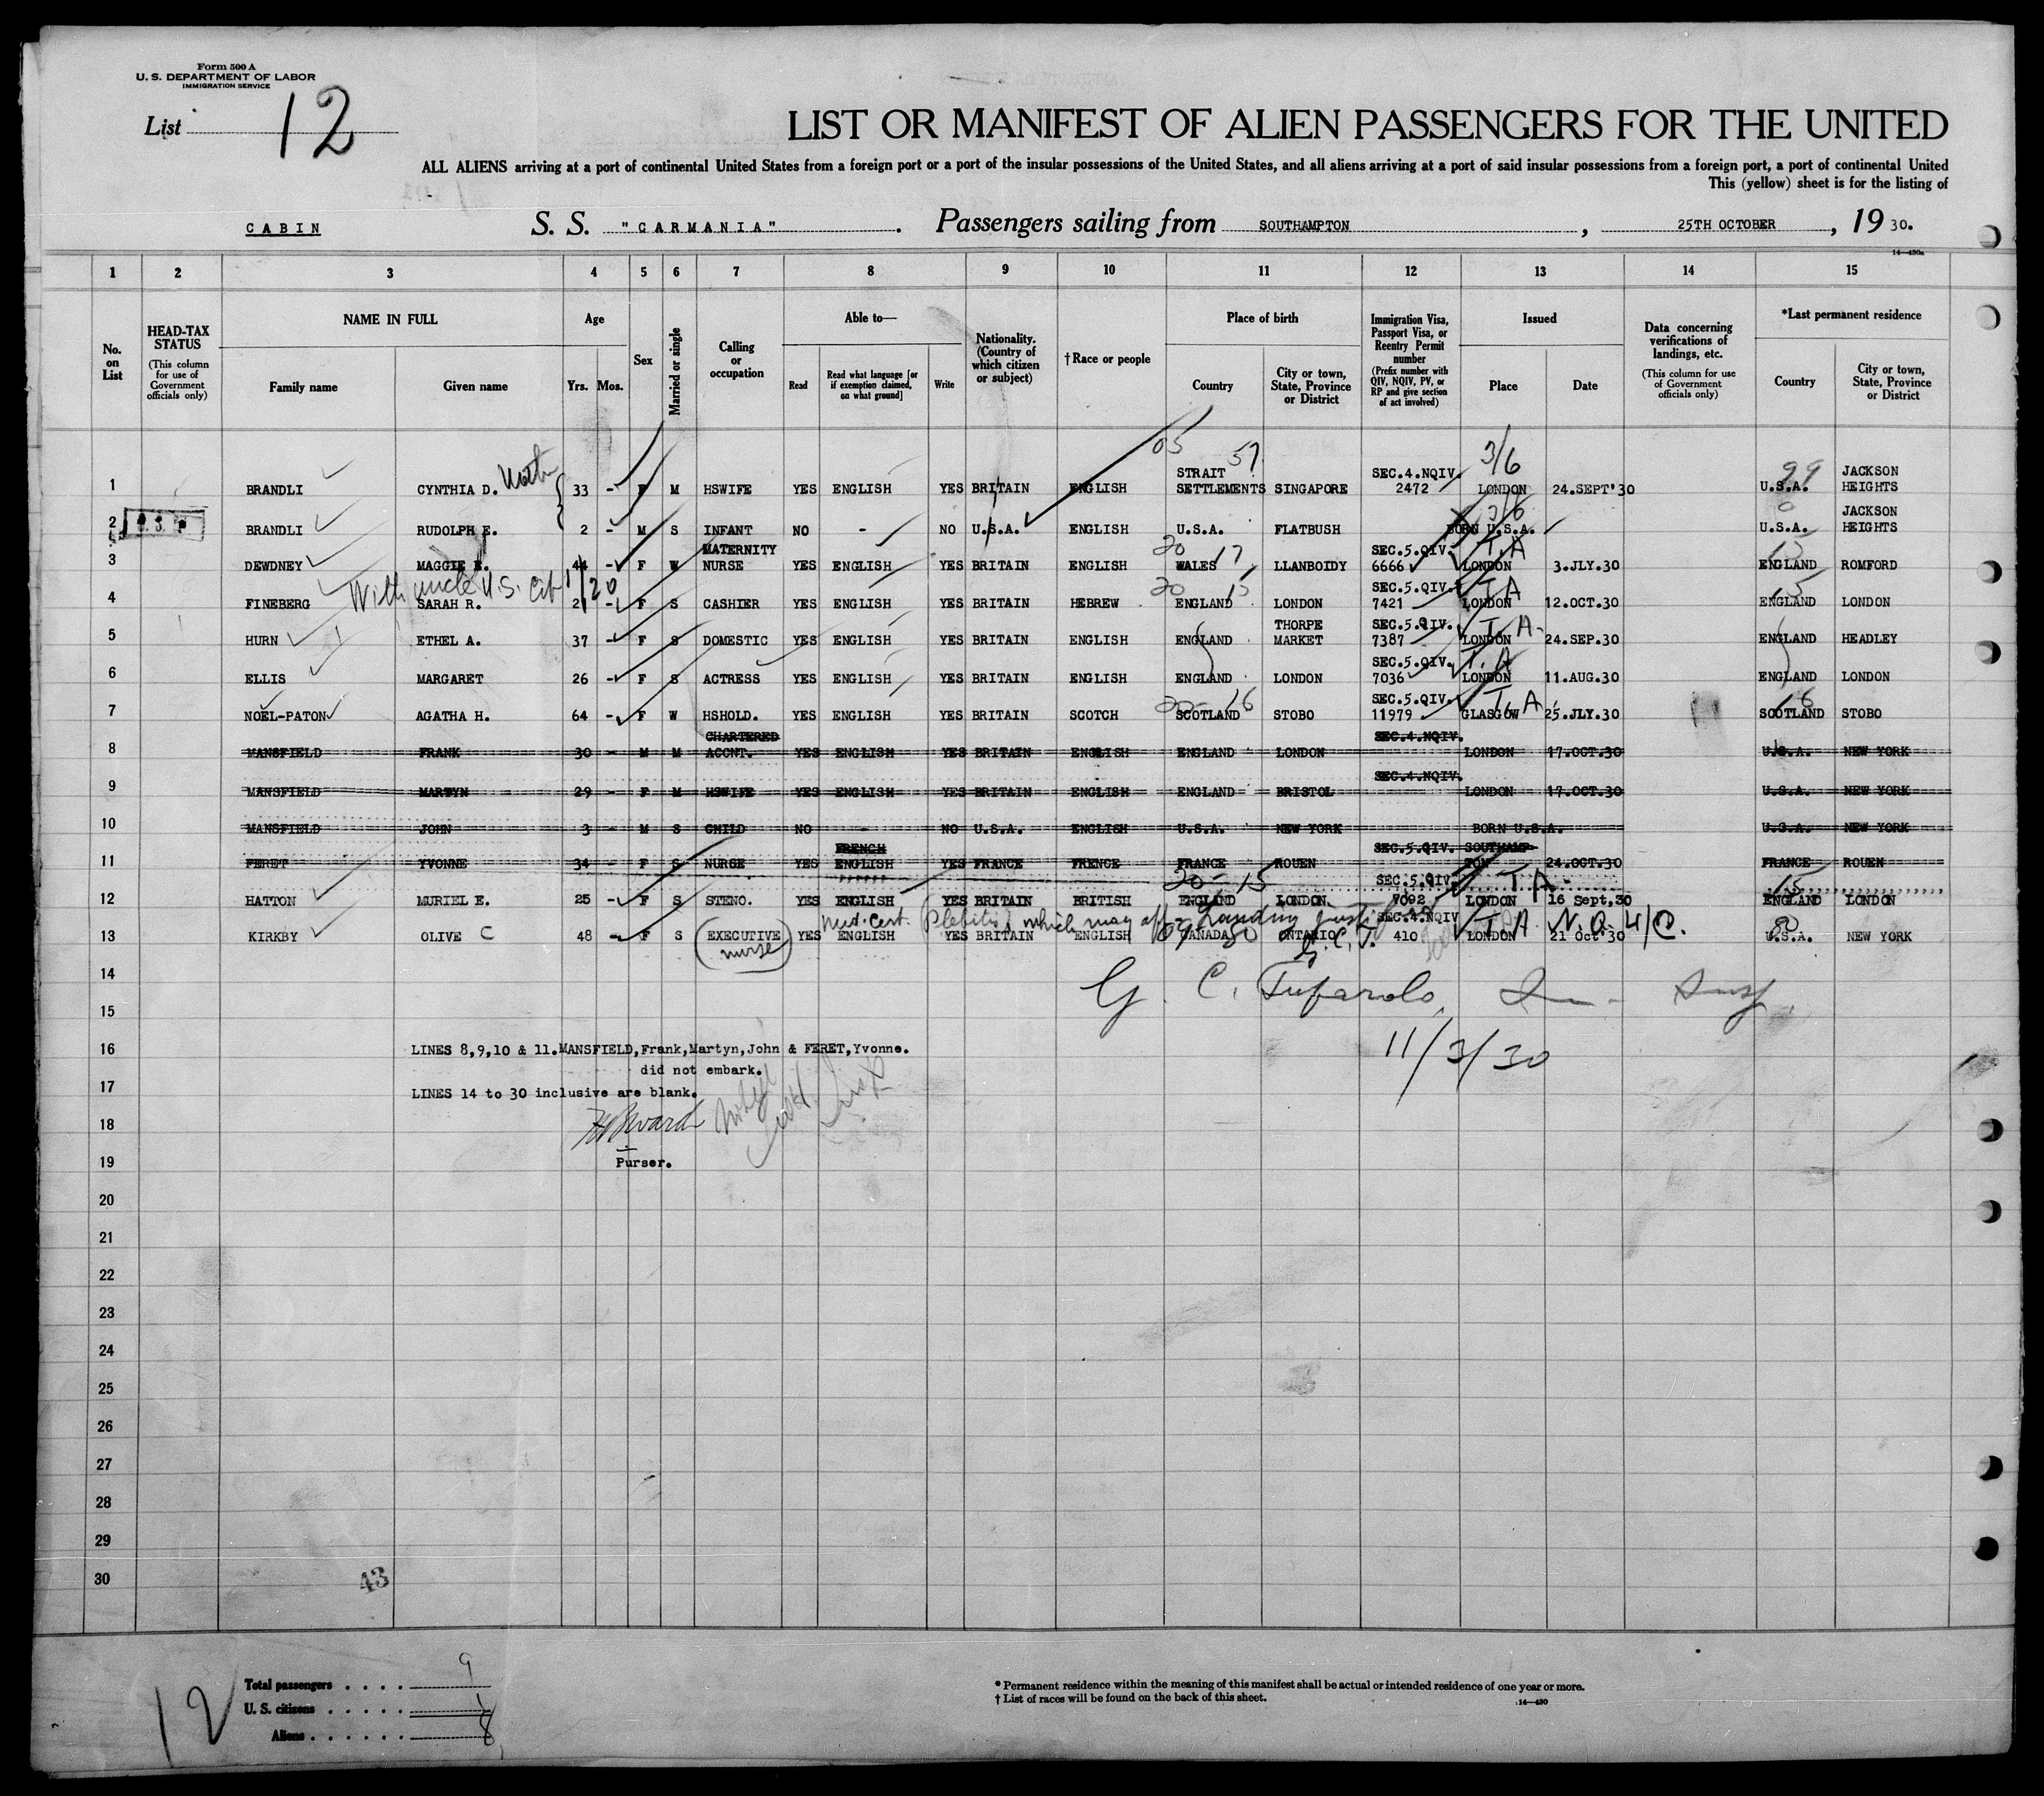 Form 500 A
U. S. DEPARTMENT OF LABOR
IMMIGRATION SERVICE
List 12
LIST OR MANIFEST OF ALIEN PASSENGERS FOR THE UNITED
ALL ALIENS arriving at a port of continental United States from a foreign port or a port of the insular possessions of the United States, and all aliens arriving at a port of said insular possessions from a foreign port, a port of continental United
This (yellow) sheet is for the listing of
CABIN S. S. "CARMANIA". Passengers sailing from SOUTHAMPTON, 25TH OCTOBER, 19 30.
14—430a
1 2 3 4 5 6 7 8 9 10 11 12 13 14 15
No. on List
HEAD-TAX STATUS (This column for use of Government officials only)
NAME IN FULL Family name Given name
Age Yrs. Mos.
Sex
Married or single
Calling or occupation
Able to— Read Read what language [or if exemption claimed, on what ground] Write
Nationality. (Country of which citizen or subject)
†Race or people
Place of birth Country City or town, State, Province or District
Immigration Visa, Passport Visa, or Reentry Permit number (Prefix number with QIV, NQIV, PV, or RP and give section of act involved)
Issued Place Date
Data concerning verifications of landings, etc. (This column for use of Government officials only)
*Last permanent residence Country City or town, State, Province or District
05 57 3/6 99
1 BRANDLI CYNTHIA D. 33 - F M HSWIFE YES ENGLISH YES BRITAIN ENGLISH STRAIT SETTLEMENTS SINGAPORE SEC.4.NQIV. 2472 LONDON 24.SEPT'30 U.S.A. JACKSON HEIGHTS
2 BRANDLI RUDOLPH E. 2 - M S INFANT NO - NO U.S.A. ENGLISH U.S.A. FLATBUSH BORN U.S.A. 3/6 U.S.A. JACKSON HEIGHTS
3 DEWDNEY MAGGIE E. 44 - F W MATERNITY NURSE YES ENGLISH YES BRITAIN ENGLISH 20 17 WALES LLANBOIDY SEC.5.QIV. 6666 T.A LONDON 3.JLY.30 15 ENGLAND ROMFORD
With uncle U.S. cit 1/20
4 FINEBERG SARAH R. 21 - F S CASHIER YES ENGLISH YES BRITAIN HEBREW 20 15 ENGLAND LONDON SEC.5.QIV. 7421 T A LONDON 12.OCT.30 15 ENGLAND LONDON
5 HURN ETHEL A. 37 - F S DOMESTIC YES ENGLISH YES BRITAIN ENGLISH ENGLAND THORPE MARKET SEC.5.QIV. 7387 T. A- LONDON 24.SEP.30 ENGLAND HEADLEY
6 ELLIS MARGARET 26 - F S ACTRESS YES ENGLISH YES BRITAIN ENGLISH ENGLAND LONDON SEC.5.QIV. 7036 T. A LONDON 11.AUG.30 ENGLAND LONDON
7 NOËL-PATON AGATHA H. 64 - F W HSHOLD. YES ENGLISH YES BRITAIN SCOTCH 20- 16 SCOTLAND STOBO SEC.5.QIV. 11979 T. A. GLASGOW 25.JLY.30 16 SCOTLAND STOBO
8 MANSFIELD FRANK 30 - M M CHARTERED ACCNT. YES ENGLISH YES BRITAIN ENGLISH ENGLAND LONDON SEC.4.NQIV. LONDON 17.OCT.30 U.S.A. NEW YORK
9 MANSFIELD MARTYN 29 - F M HSWIFE YES ENGLISH YES BRITAIN ENGLISH ENGLAND BRISTOL SEC.4.NQIV. LONDON 17.OCT.30 U.S.A. NEW YORK
10 MANSFIELD JOHN 3 - M S CHILD NO - NO U.S.A. ENGLISH U.S.A. NEW YORK BORN U.S.A. U.S.A. NEW YORK
11 FERET YVONNE 34 - F S NURSE YES FRENCH ENGLISH YES FRANCE FRENCE FRANCE ROUEN SEC.5.QIV. SOUTHAMP- TON 24.OCT.30 FRANCE ROUEN
12 HATTON MURIEL E. 25 - F S STENO. YES ENGLISH YES BRITAIN BRITISH 20- 15 ENGLAND LONDON SEC.5.QIV. 7092 T A- LONDON 16 Sept,30 15 ENGLAND LONDON
Med. Cert. which may aff Landing
13 KIRKBY OLIVE C 48 - F S EXECUTIVE (nurse) YES ENGLISH YES BRITAIN ENGLISH CANADA ONTARIO SEC.4.NQIV 410 T A LONDON 21 Oct'30 N.Q. 4/C. U.S.A. NEW YORK
G.C.T.
14
G. C. Tufarolo, Insp.
15
16 LINES 8,9,10 & 11.MANSFIELD,Frank,Martyn,John & FERET,Yvonne.
11/3/30
did not embark.
17 LINES 14 to 30 inclusive are blank.
18
19 Purser.
20
21
22
23
24
25
26
27
28
29
30
43
12
Total passengers . . . . 9
U. S. citizens . . . . . 1
Aliens . . . . . . 8
* Permanent residence within the meaning of this manifest shall be actual or intended residence of one year or more.
† List of races will be found on the back of this sheet. 14—430